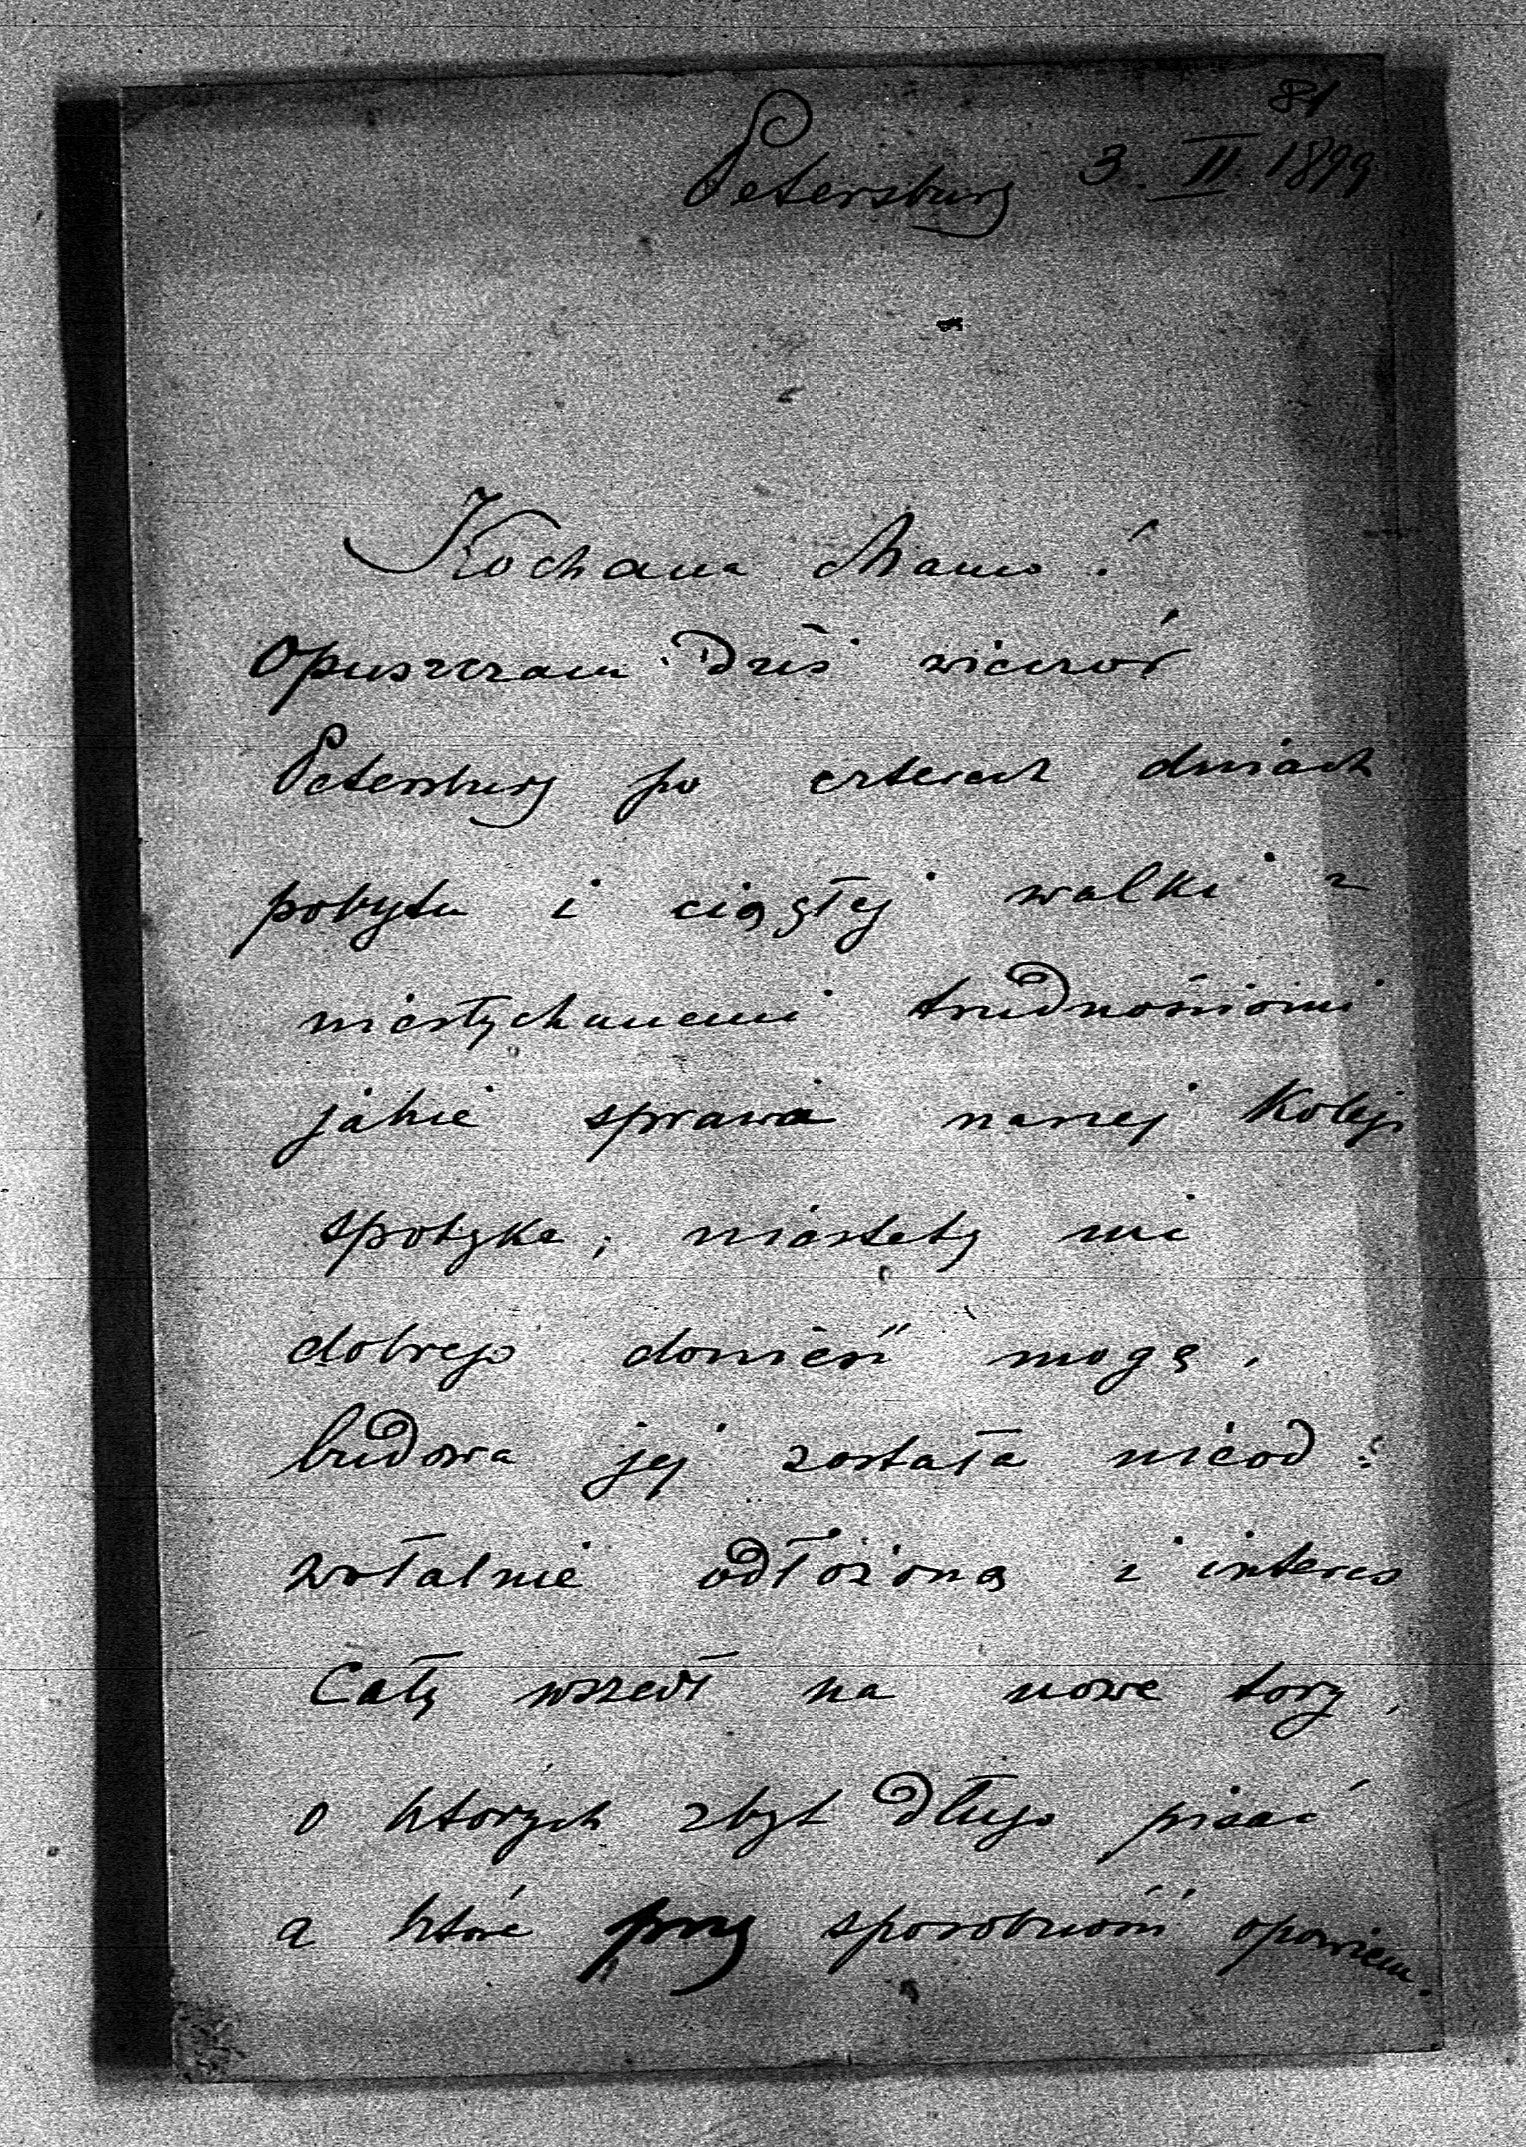 81
Petersburg 3. II. 1899
Kochana Mamo!
Opuszczam dziś wieczór
Petersburg po czterech dniach
pobytu i ciągłej walki z
niesłychanemi trudnościami
jakie sprawa naszej Koleji
spotyka; niestety nic
dobrego donieść mogę,
budowa jej została nieod=
wołalnie odłożoną i interes
Cały wszedł na nowe tory,
o których zbyt długo pisać
a które przy sposobność opowiem.